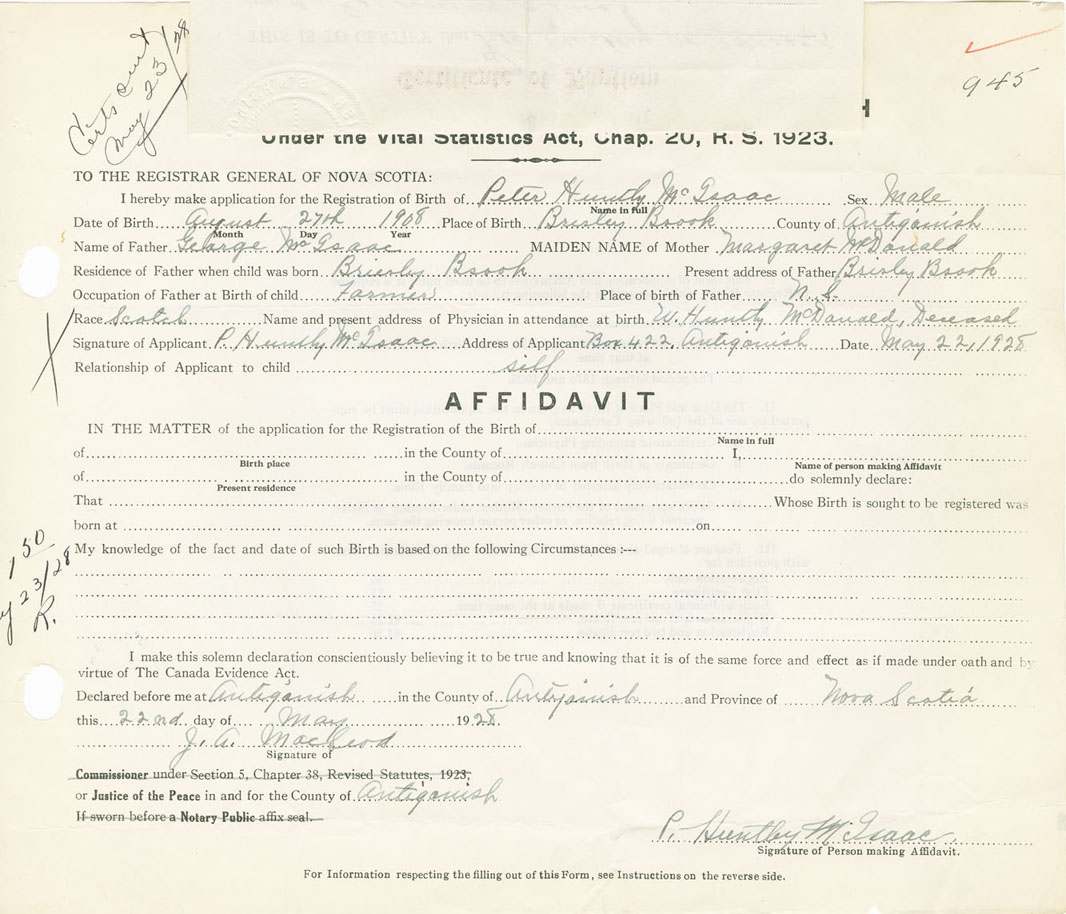 Certs sent
May 23/28
945
Under the Vital Statistics Act, Chap. 20, R. S. 1923.
TO THE REGISTRAR GENERAL OF NOVA SCOTIA:
I hereby make application for the Registration of Birth of Peter Huntly McIsaac Sex Male
Name in full
Date of Birth August 27th 1908 Place of Birth Brisley Brook County of Antigonish
Month Day Year
Name of Father George McIsaac MAIDEN NAME of Mother Margaret McDonald
Residence of Father when child was born Briesly Brook Present address of Father Brisley Brook
Occupation of Father at Birth of child Farmer Place of birth of Father N.S.
Race Scotch Name and present address of Physician in attendance at birth W. Huntly McDonald, Deceased
Signature of Applicant P. Huntly McIsaac Address of Applicant Box 422, Antigonish Date May 22, 1928
Relationship of Applicant to child self
AFFIDAVIT
IN THE MATTER of the application for the Registration of the Birth of
Name in full
of in the County of I,
Birth place Name of person making Affidavit
of in the County of do solemnly declare:
Present residence
That Whose Birth is sought to be registered was
born at on
My knowledge of the fact and date of such Birth is based on the following Circumstances :---
1 50
23/28
R.
I make this solemn declaration conscientiously believing it to be true and knowing that it is of the same force and effect as if made under oath and by
virtue of The Canada Evidence Act.
Declared before me at Antigonish in the County of Antigonish and Province of Nova Scotia
this 22nd day of May 1928
J. A. MacLeod
Signature of
Commissioner under Section 5, Chapter 38, Revised Statutes, 1923,
or Justice of the Peace in and for the County of Antigonish
If sworn before a Notary Public affix seal.
P. Huntley McIsaac
Signature of Person making Affidavit.
For Information respecting the filling out of this Form, see Instructions on the reverse side.